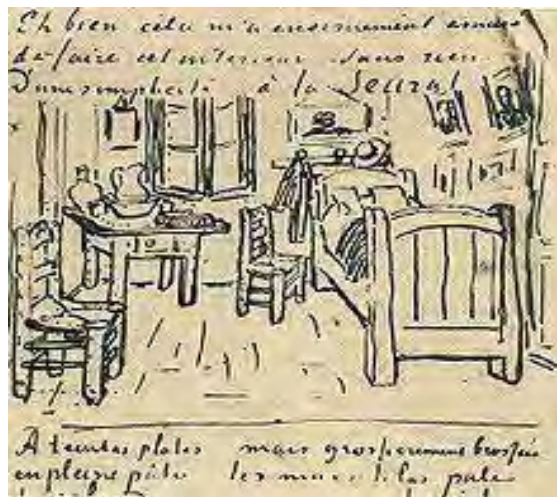 Eh bien cela m'a enormement amusé
de faire cet interieur sans rien.
D'une simplicité à la Seurat
A teintes plates mais grossierement brossée
en pleine pâte les murs lilas pale